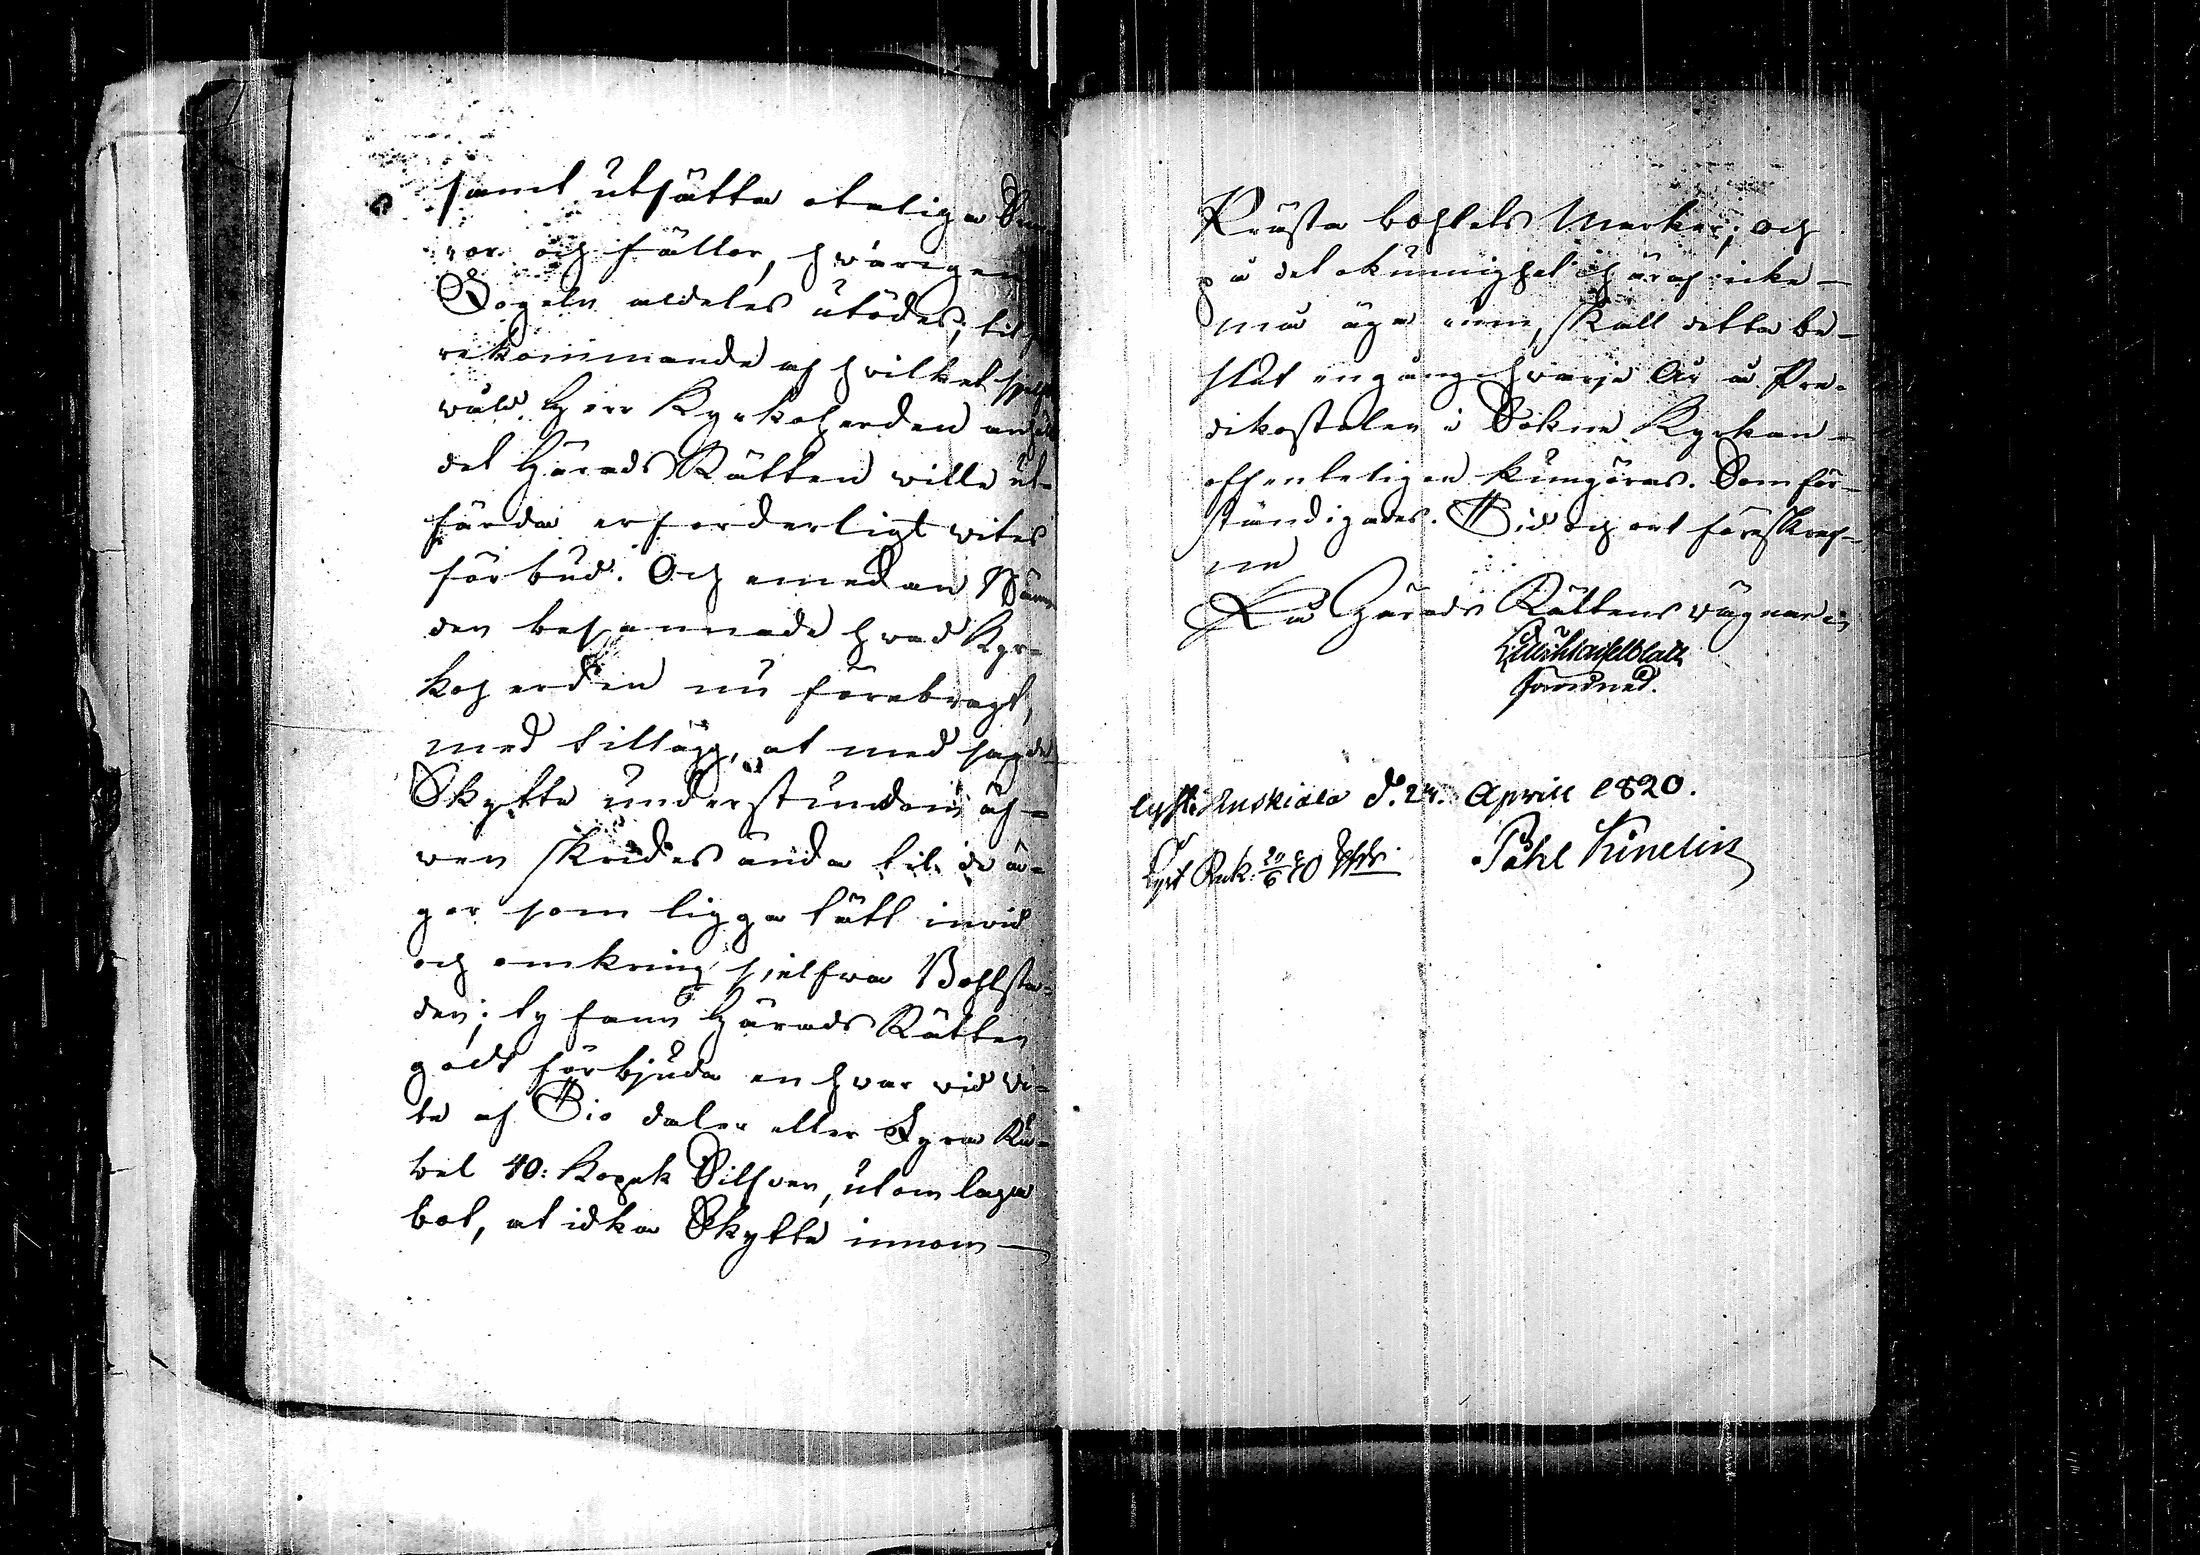 samt utsätta otaliga Sna
ror och fällor, hwarigen
Fogeln aldeles utödes, til
rekommande af hwilket
wåld, Herr Kyrkoherden anhöll
det Härads Rätten wille ut-
färda erforderligt wites
förbud. Och emedan Nämn
den besannade hwad Kyr-
koherden nu förebragt,
med tillägg, at med sagde
Skytte understundom äf-
wen skrides ända til de å-
ger som ligga tätt inwid
och omkring sjelfwa Bohlsta-
den; ty fann Härads Rätten
godt förbjuda en hwar wid Wi-
te af Tio daler eller Fyra Ru-
bel 40: Kopek Silfwer, utom laga
bot, at idka Skytte innom
Prästa bohlets Marker; och
på det okunnighet häraf icke
må äga rum, skall detta be-
slut en gång hwarje År å Pre-
dikostolen i Sokne Kyrkan
offenteligen kungöras. Som för-
ständigades. Tid och ort förskref-
ne
På Härads Rättens wägnar
förordnad.
Lyst: Ruskiala d. 24. April 1820.
Pahl Kinelin
Lyst Rusk. 20/6 40